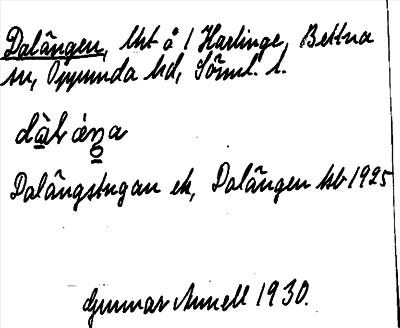 Dalängen, lht å 1 Harlinge, Bettna
sn, Oppunda hd, Söml. l.
Dalängstugan ek, Dalängen hb 1925
Gunnar Annell 1930.